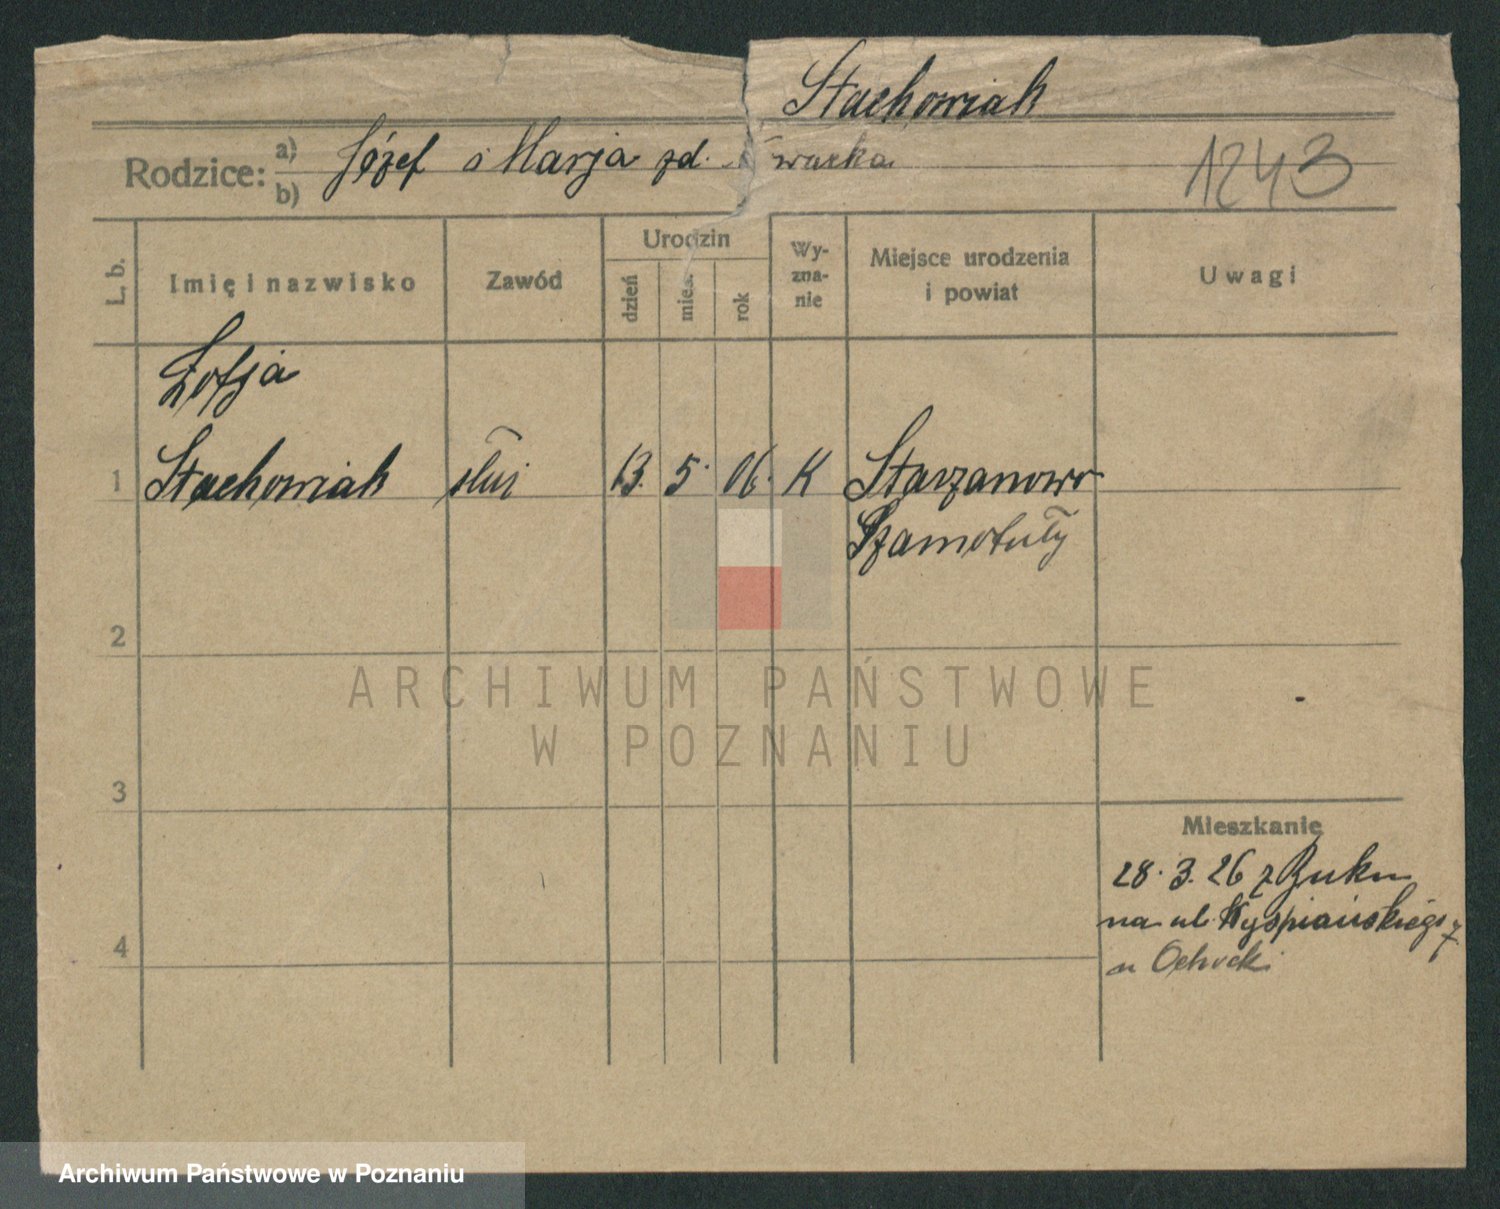 Stachowiak
Rodzice: a) b) Józef i Marja zd. warka
1243
L. b.
Imię i nazwisko
Zawód
Urodzin
dzień
mies.
rok
Wy-
zna-
nie
Miejsce urodzenia
i powiat
Uwagi
Zofja
1 Stachowiak służ 13. 5. 06. K Starzanowo
Szamotuły
2
ARCHIWUM PAŃSTWOWE
W POZNANIU
3
Mieszkanie
28. 3. 26 z Buku
na ul. Wyspiańskiego 7
4
Archiwum Państwowe w Poznaniu